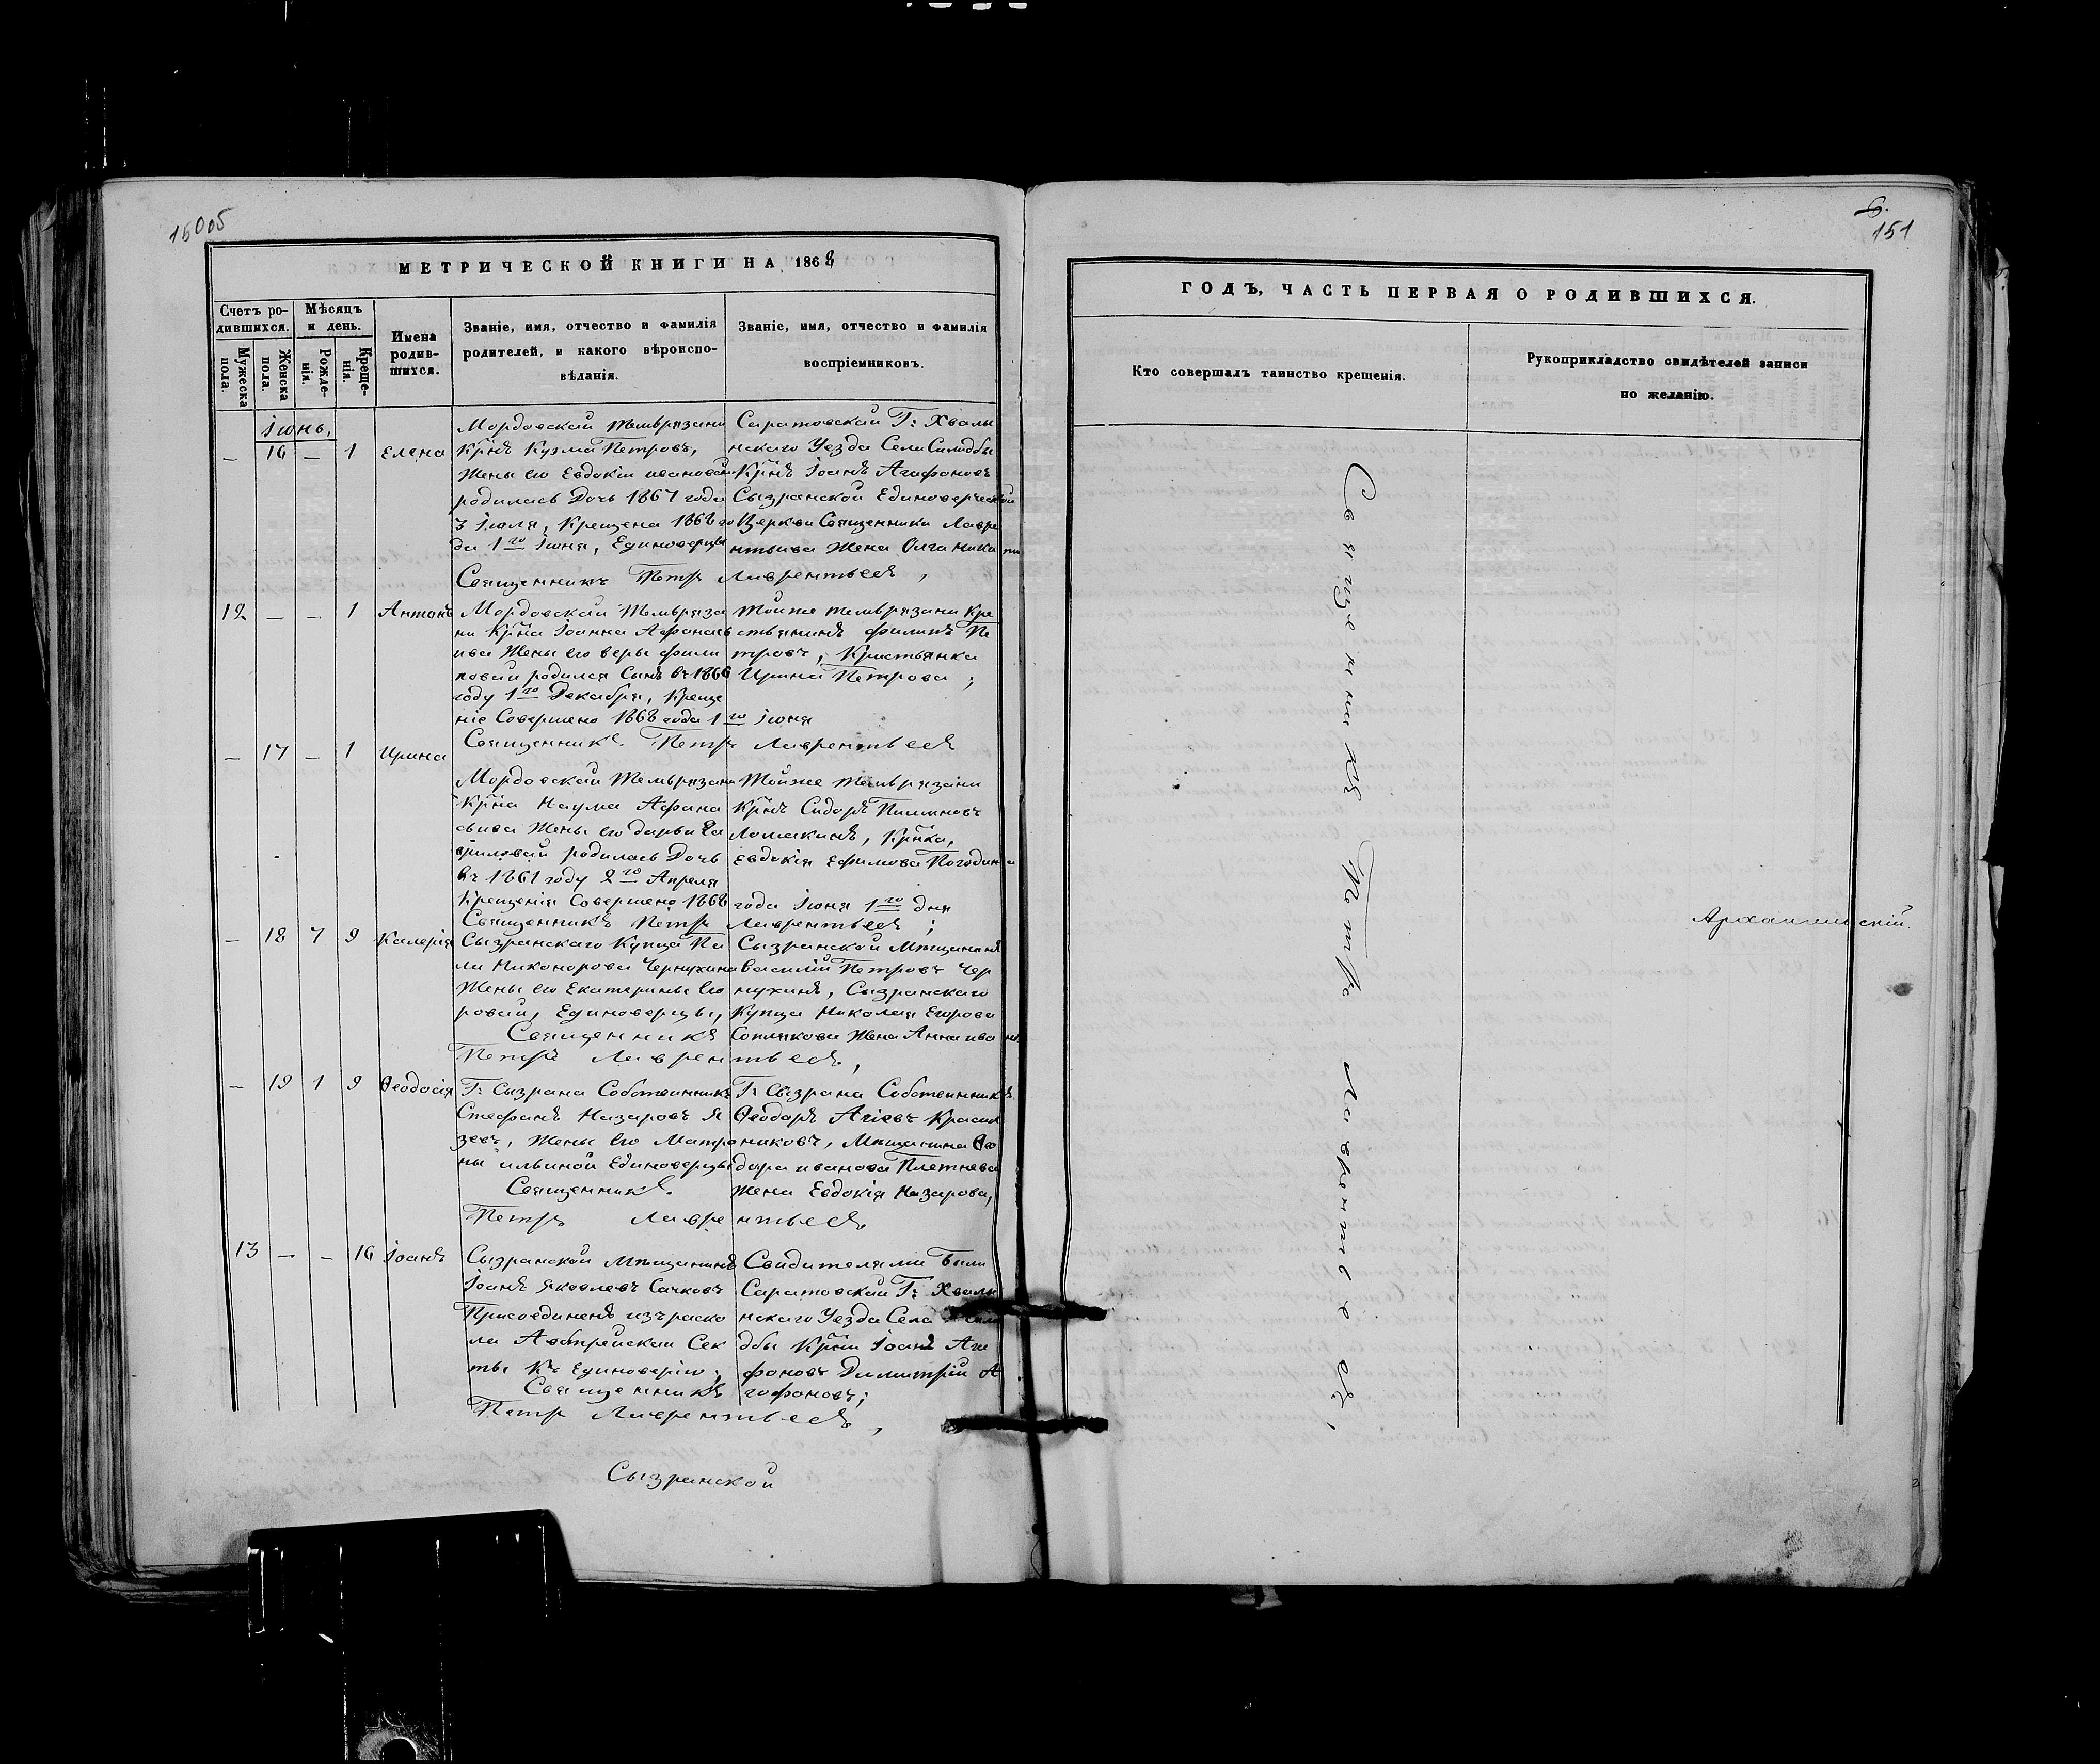 15005
МЕТРИЧЕСКОЙ КНИГИ НА 1868
Счетъ ро-
дившихся.
Мѣсяцъ
и день.
Мужеска
пола.
Женска
пола.
Рожде-
нія.
Креще-
нія.
Имена
родив-
шихся.
Званіе, имя, отчество и фамилія
родителей, и какого вѣроиспо-
вѣданія.
Званіе, имя, отчество и фамилія
воспріемниковъ.
Іюнь,
— 16 — 1 Елена
Мордовской Темврязани
Крнъ Кузма Петровъ,
Жены его Евдокіи ивановой
родилась Дочь 1867 года
3 Іюля, Крещена 1868 го
да 1го Іюня, Единоверцы
Священникъ Петръ Лаврентьевъ,
Саратовской Г: Хвалы
нскаго Уезда Села Самодды
Крнъ Іоанъ Агафоновъ
Сызранской Единоверческой
Церкви Священника Лавре
нтьива Жена Олга Никити
12 — — 1 Антонъ
Мордовской Темвряза
ни Крна Іоанна Афонась
ива Жены его веры фили
повой родился Сынъ въ 1866
году 1го Декабря, Креще
ніе Совершено 1868 года 1го Іюня
Священникъ Петръ Лаврентьевъ
Тойже темврязани Кре
стьянинъ филипъ Пе
тровъ, Кристьянка
Ирина Петрова;
— 17 — 1 Ирина
Мордовской Темврязани
Крна Наума Афана
сьива Жены его дарьи Га
вриловой родилась Дочь
въ 1861 году 2го Апреля
Крещенія Совершено 1868 года Іюня 1го дня
Священникъ Петръ Лаврентьевъ;
Тойже Темврязани
Крнъ Сидоръ Пименовъ
Ломакинъ, Крнка,
Евдокія Ефимова Погодина
— 18 7 9 Калерія
Сызранскаго Купца Па
ла Никонорова Чернухина
Жены его Екатерины Его
ровой, Единоверцы,
Священникъ
Петръ Лаврентьевъ,
Сызранской Мѣщанинъ
Василій Петровъ Чер
нухинъ, Сызранскаго
Купца Николая Егорова
Соплякова Жена Анна ива но
— 19 1 9 Ѳеодосія
Г: Сызрана Собственникъ
Стефанъ Назаровъ Я
зевъ, Жены его Матро
ны ильиной Единоверцы
Священникъ.
Петръ Лаврентьевъ.
Г: Сызрана Собственникъ
Ѳеодоръ Агіевъ Красил
никовъ, Мѣщанина Ѳео
дора иванова Плетнева
Жена Евдокія Назарова,
13 — — 16 Іоанъ
Сызранской Мѣщанинъ
Іоанъ Яковлевъ Сачковъ
Присоединенъ изъ раско
ла Австрейской Сек
ты Къ Единоверію;
Священникъ
Петръ Лаврентьевъ,
Свидителями Были
Саратовской Г: Хвалы
нскаго Уезда Села Само
дды Крни Іоанъ Ага
фоновъ Димитрій А
гофоновъ;
Сызранской
6.
151
ГОДЪ, ЧАСТЬ ПЕРВАЯ О РОДИВШИХСЯ.
Кто совершалъ таинство крещенія.
Рукоприкладство свидѣтелей записи
по желанію.
Священникъ Петръ Лаврентьевъ,
Архангельскій.